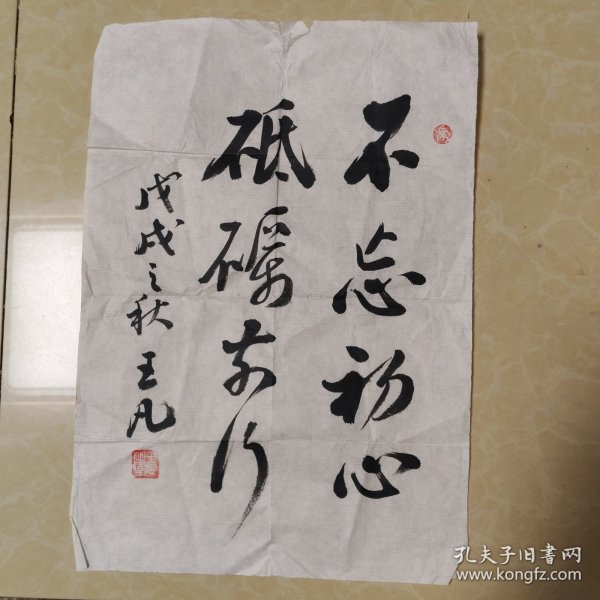 不忘初心
砥砺前行
戊戌之秋 王凡
孔夫子旧书网
www.kongfz.com